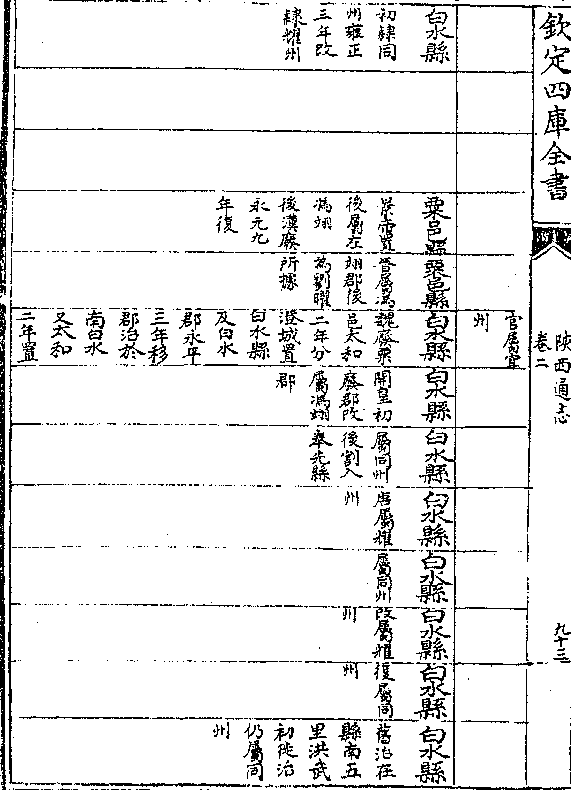 欽定四庫全書
陝西通志
卷二
九十三
官屬宜
州
白水縣
初隸同
州雍正
三年改
隸耀州
粟邑縣
景帝置
後屬左
馮翊
後漢廢
永元九
年復
粟邑縣
晉屬馮
翊郡後
為劉曜
所據
白水縣
魏廢粟
邑太和
二年分
澄城置
白水縣
及白水
郡永平
三年移
郡治於
南白水
又太和
二年置
白水縣
開皇初
廢郡改
屬馮翊
郡
白水縣
屬同州
後割入
奉先縣
白水縣
唐屬耀
州
白水縣
屬同州
白水縣
改屬耀
州
白水縣
復屬同
州
白水縣
舊治在
縣南五
里洪武
初徙治
仍屬同
州